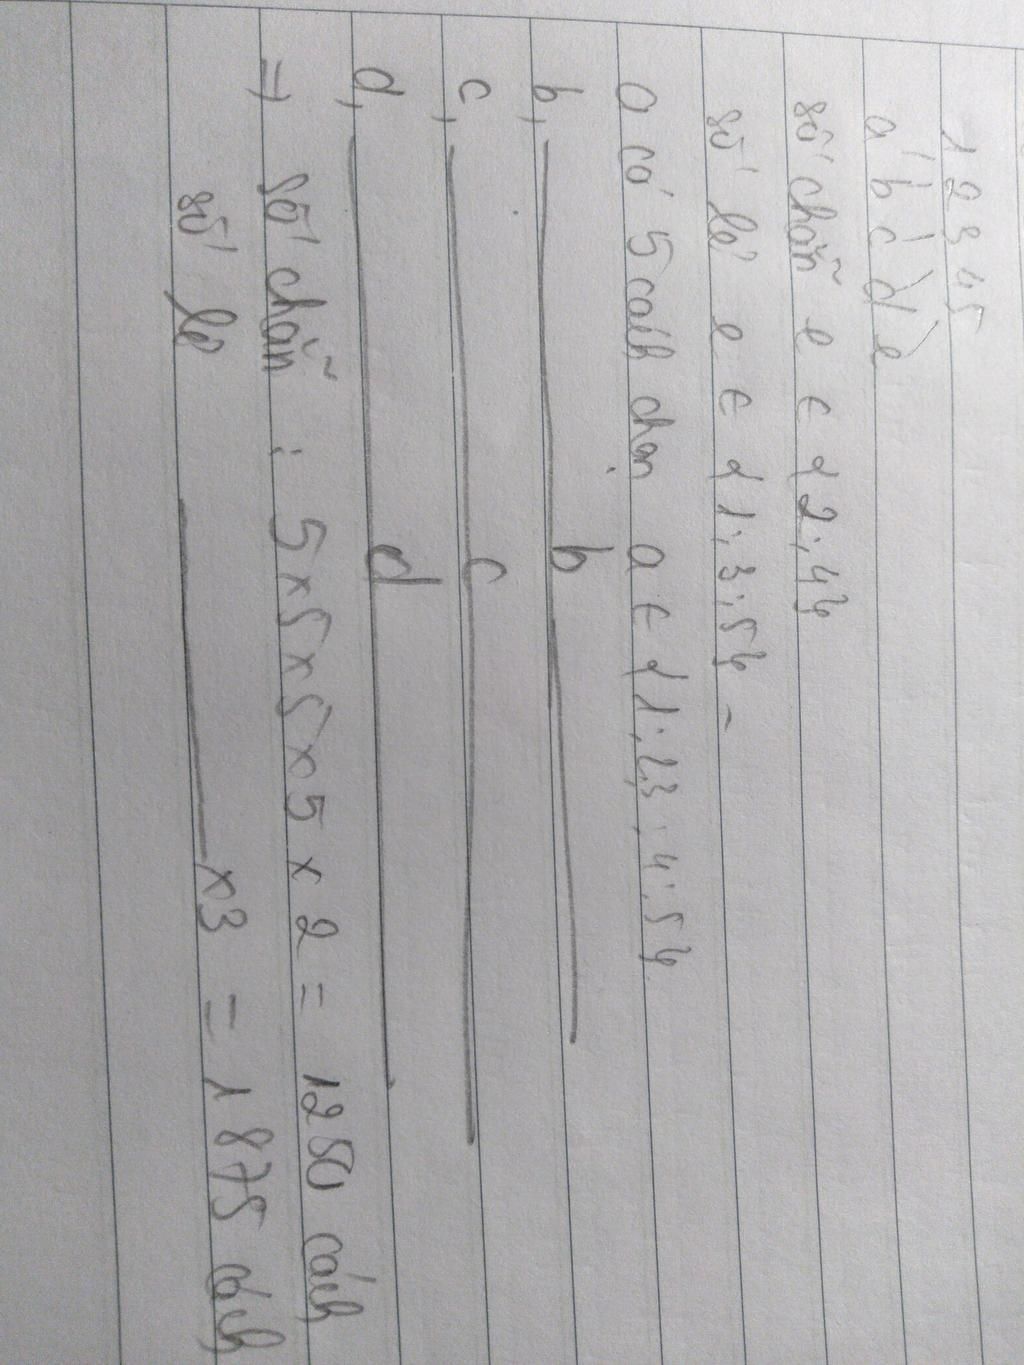 1 2 3 4 5
a b c d e
số chẵn e ∈ {2;4}
số lẻ e ∈ {1;3;5} -
a có 5 cách chọn a ∈ {1;2;3;4;5}
b, b
c, c
d, d
⇒ số chẵn : 5×5×5×5 × 2 = 1250 cách
số lẻ ×3 = 1875 cách